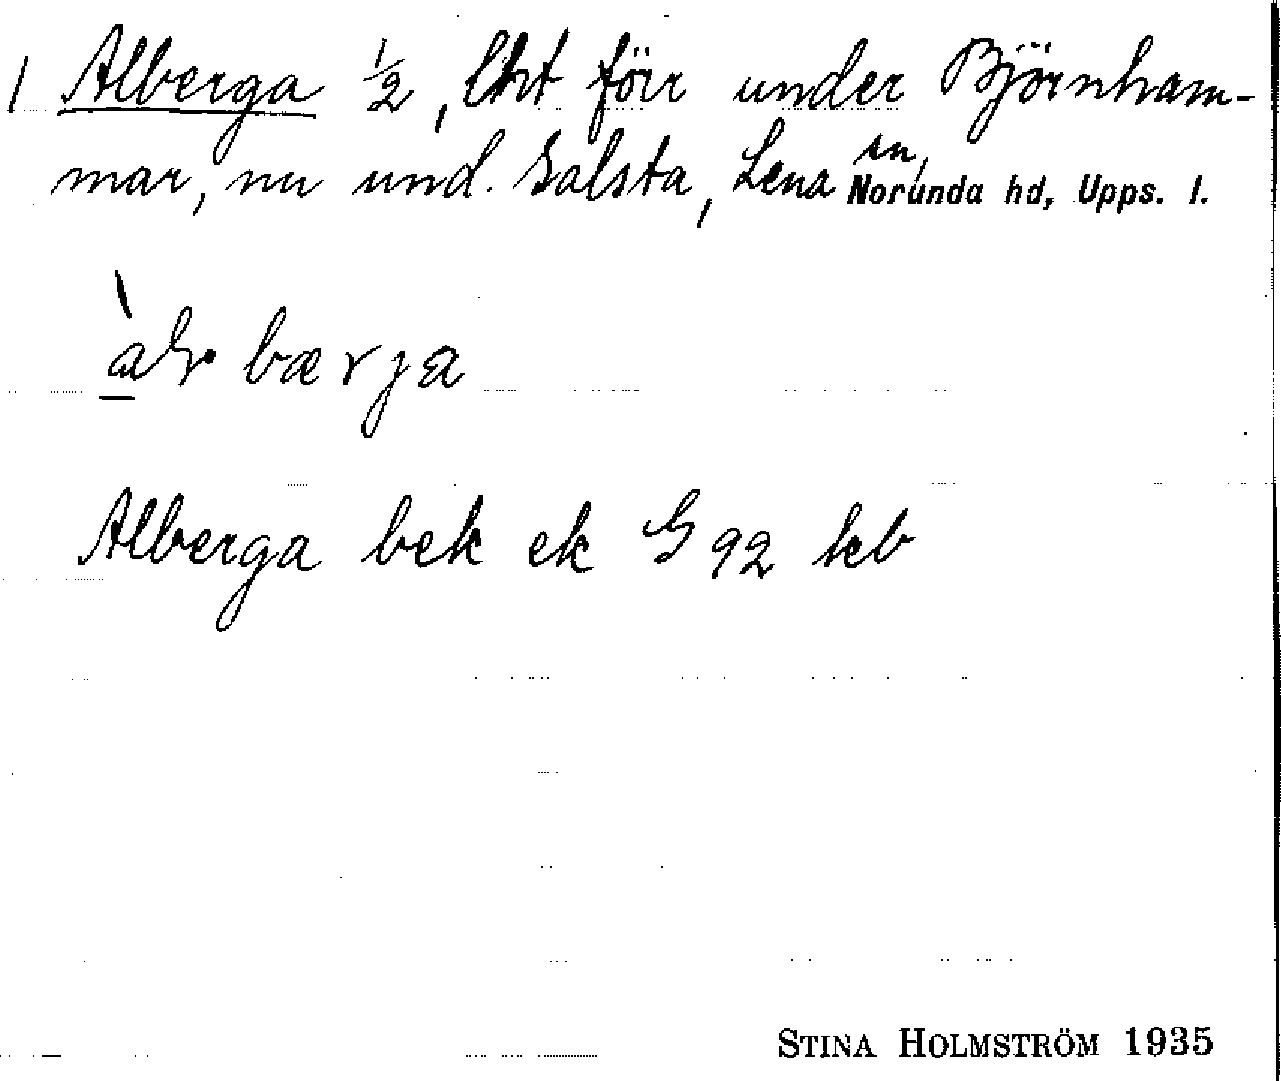 1 Alberga ½, lht förr under Björnham-
mar, nu und. Salsta, Lena sn,
Norunda hd, Upps. l.
bærja
Alberga bek ek G 92 kb
STINA HOLMSTRÖM 1935